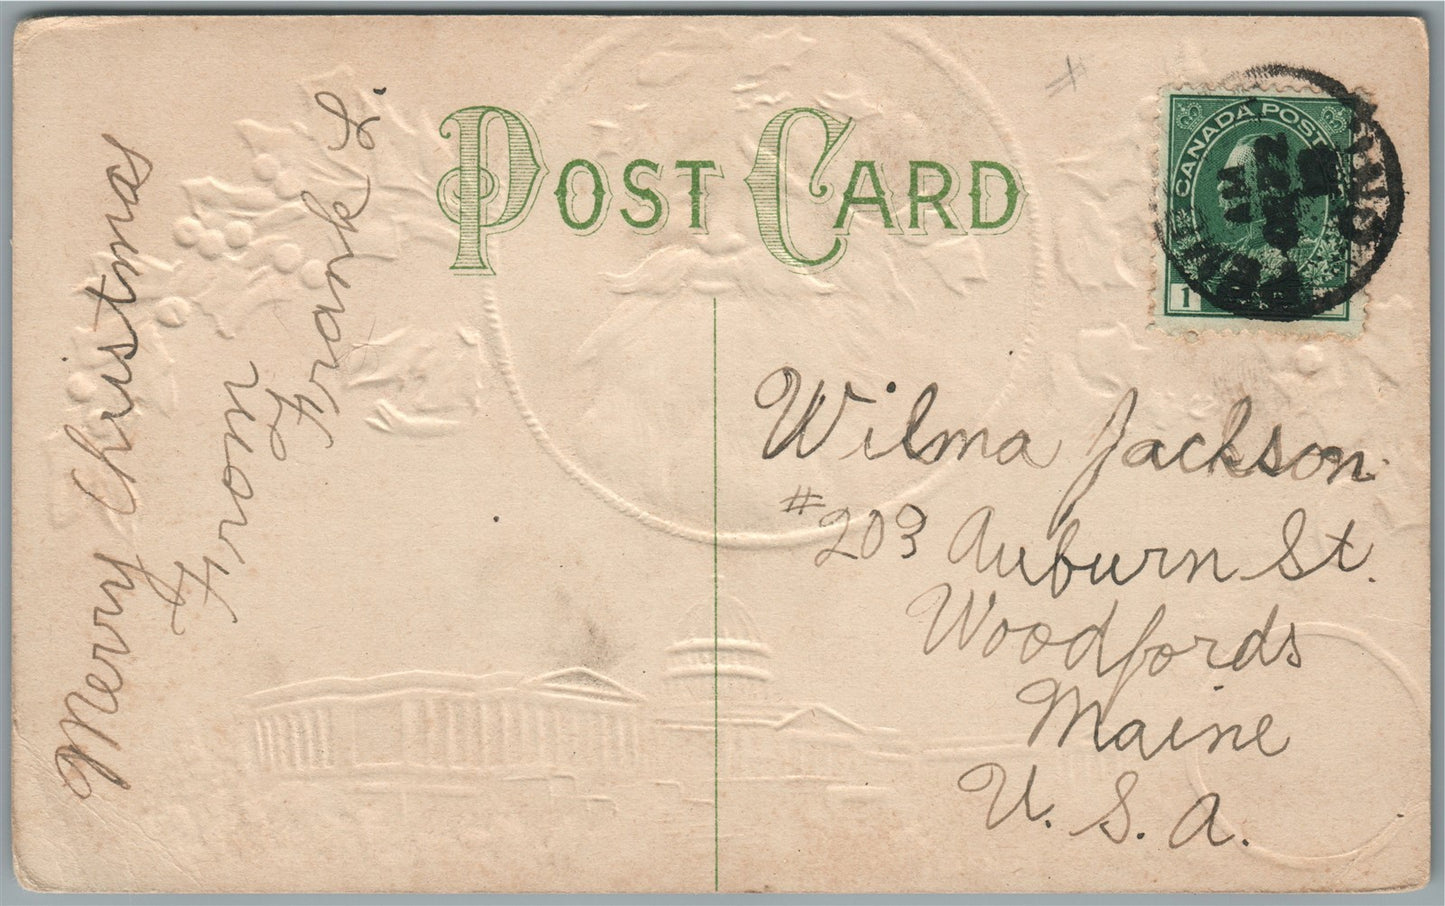 POST CARD
CANADA POST
1
Merry Christmas
From
Frank L.
Wilma Jackson
#203 Auburn St.
Woodfords
Maine
U. S. A.